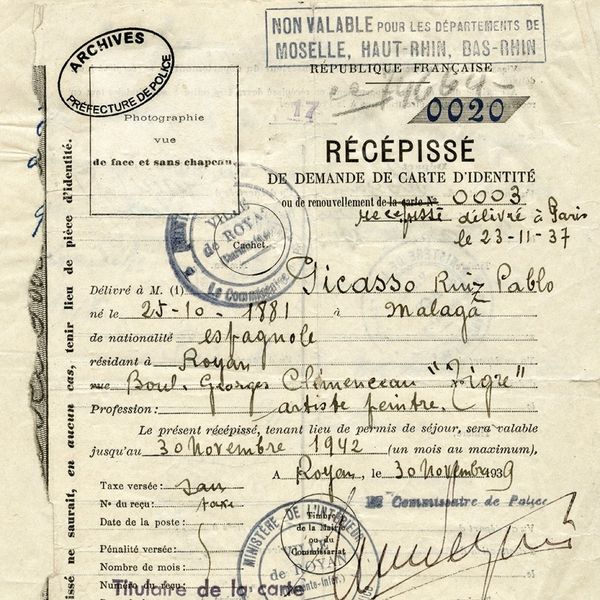 NON VALABLE POUR LES DÉPARTEMENTS DE
MOSELLE, HAUT-RHIN, BAS-RHIN
ARCHIVES
PRÉFECTURE DE POLICE
RÉPUBLIQUE FRANÇAISE
17
0020
Photographie
vue
de face et sans chapeau
RÉCÉPISSÉ
DE DEMANDE DE CARTE D'IDENTITÉ
ou de renouvellement de la carte No 0003
recepissé délivré à Paris
le 23-11-37
VILLE
de ROYAN
Cachet.
Le Commissaire
Délivré à M. (1) Picasso Ruiz Pablo
né le 25-10-1881 à Malaga
de nationalité espagnole
résidant à Royan
rue Boul. Georges Clémenceau "Tigre"
Profession: artiste peintre.
Le présent récépissé, tenant lieu de permis de séjour, sera valable
jusqu'au 30 Novembre 1942 (un mois au maximum),
A Royan, le 30 Novembre 1939
Taxe versée: san
No du reçu: taxe
Date de la poste:
Pénalité versée:
Nombre de mois:
Numéro du reçu:
Le Commissaire de Police
MINISTÈRE DE L'INTÉRIEUR
Timbre
de la Mairie
ou du
Commissariat
VILLE
de ROYAN
Titulaire de la carte
ssé ne saurait, en aucun cas, tenir lieu de pièce d'identité.